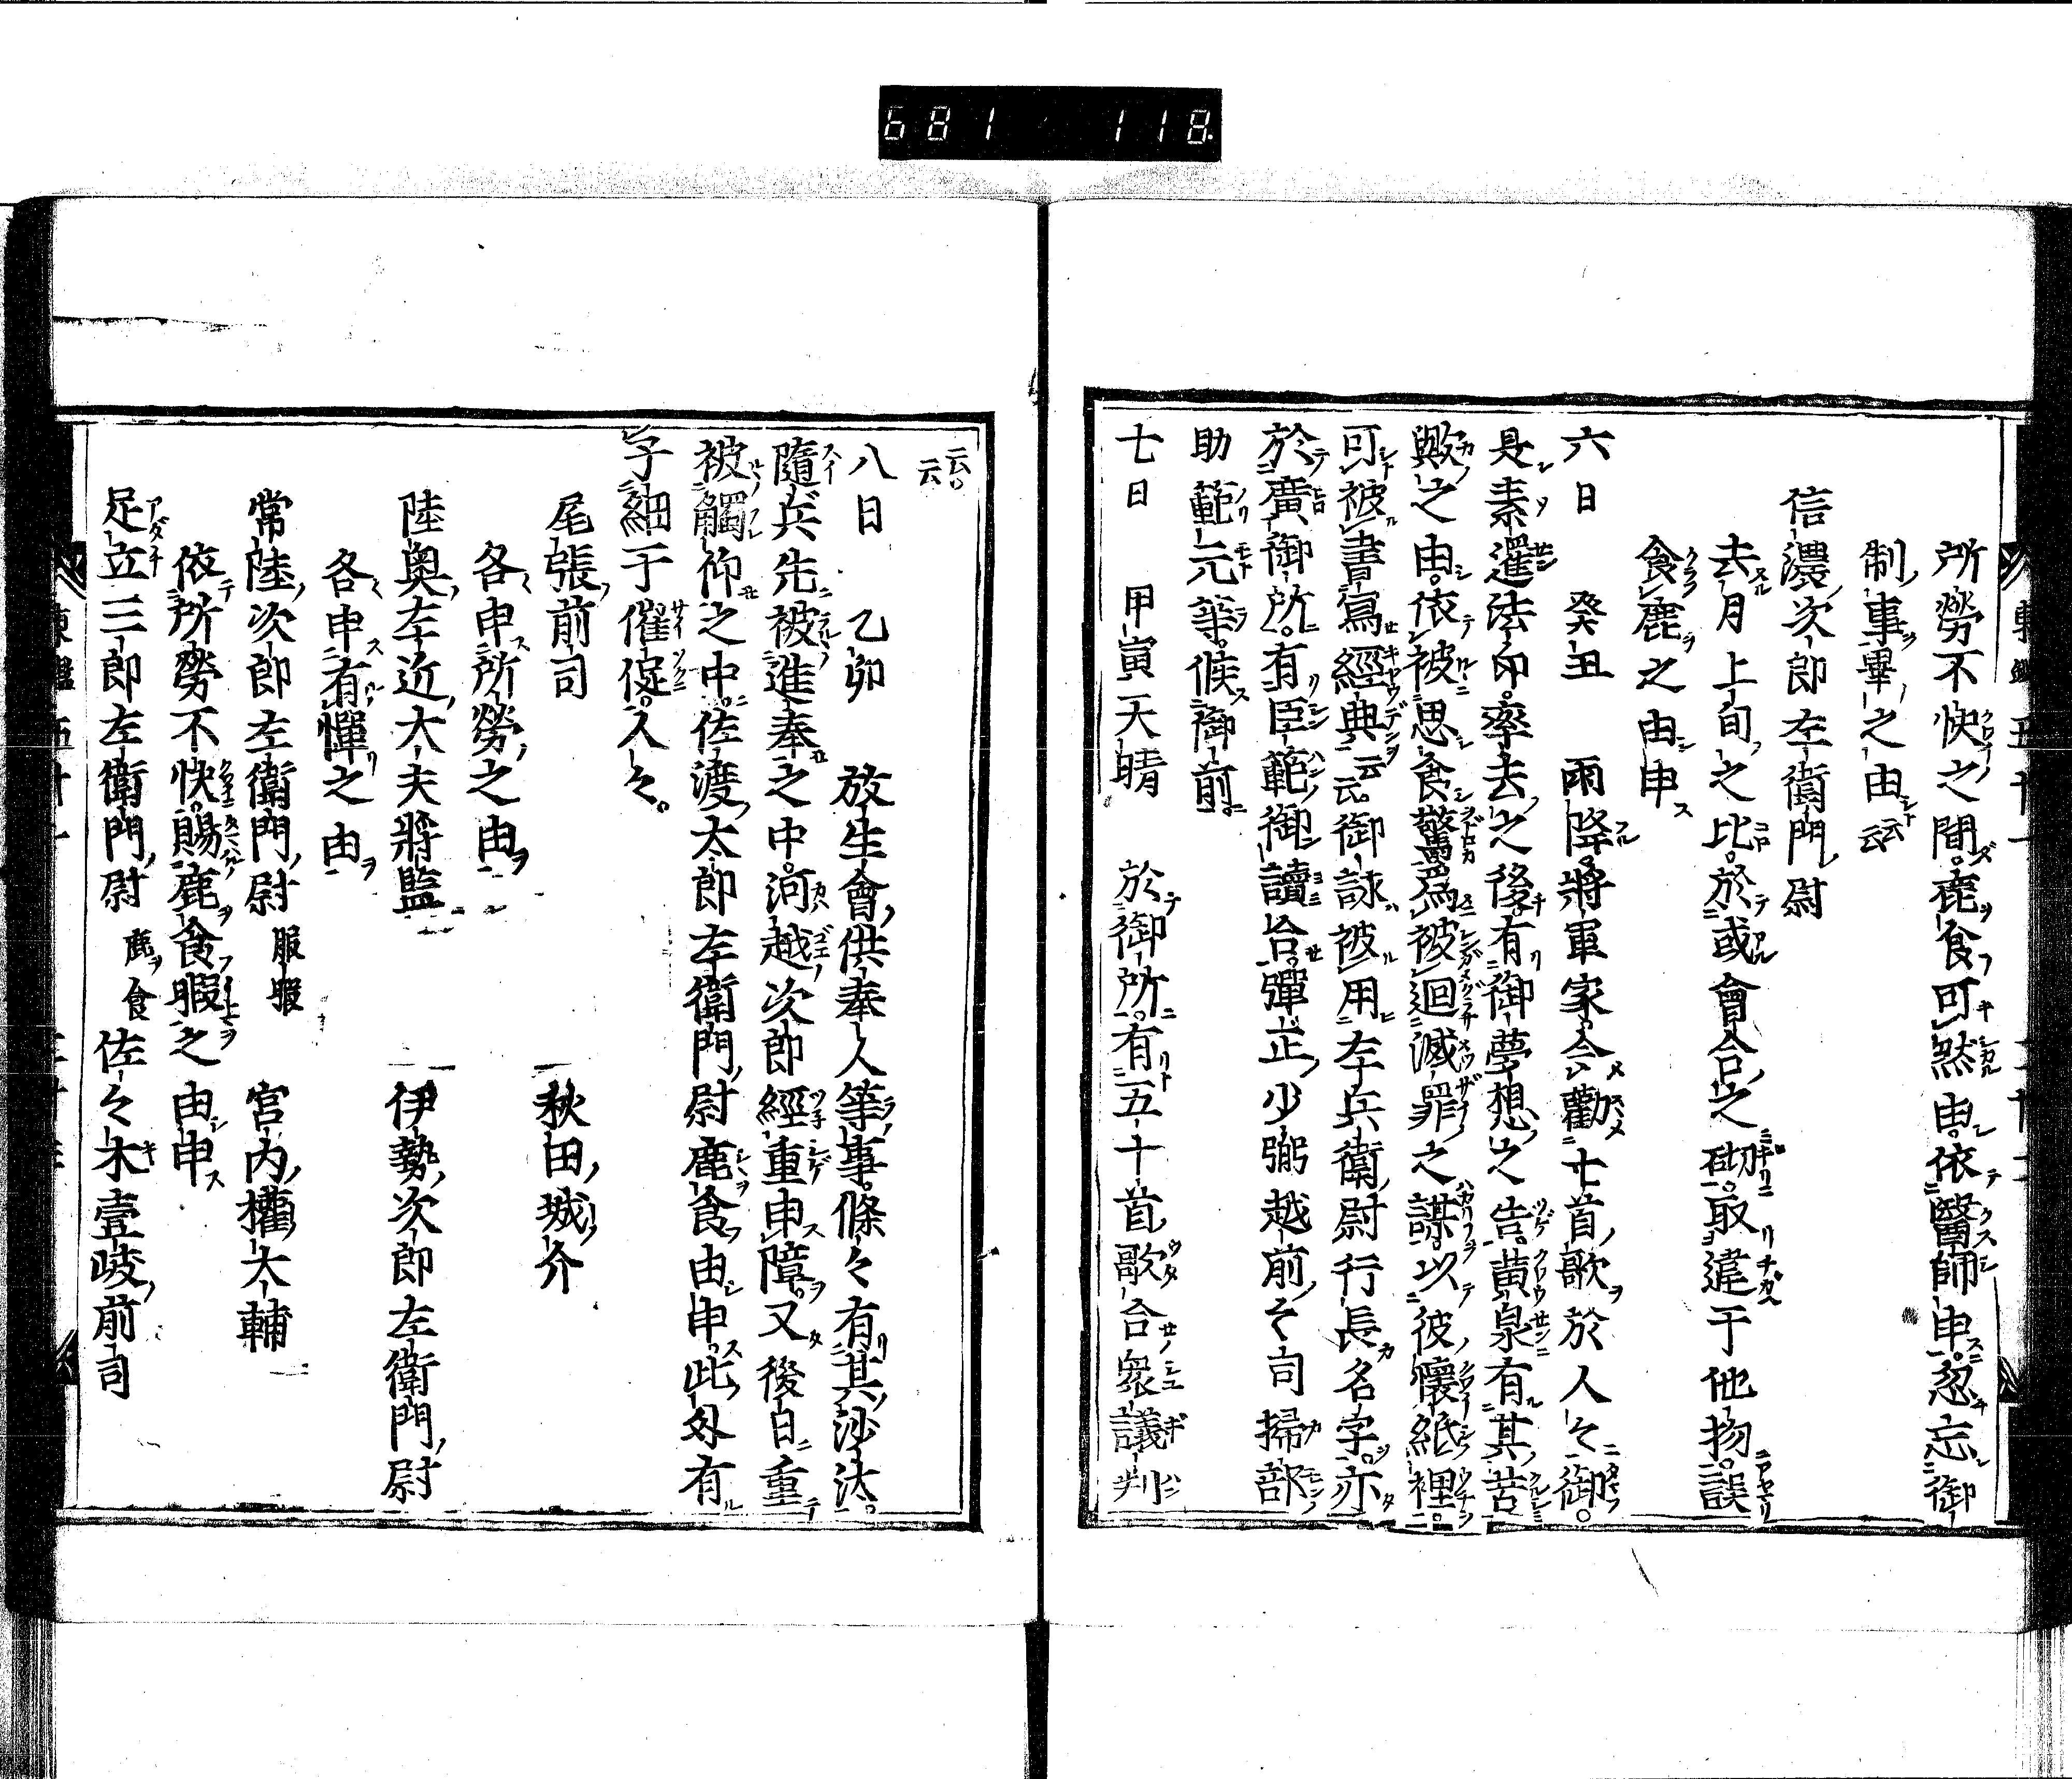 681 118
所勞不快之間鹿食可然由依醫師申忽忘御
制事畢之由云云
信濃次郎左衛門尉
去月上旬之比於或會合之砌取違于他物誤
食鹿之由申
六日 癸丑 雨降將軍家令勸十首歌於人々御
是素暹法印卒去之後有御夢想之告黄泉有其苦
歟之由依被思食驚爲被迴滅罪之謀以彼懷紙裡
可被書寫經典云云御詠被用左兵衛尉行長名字亦
於廣御所有臣範御讀合彈正少弼越前々司掃部
助範元等候御前
七日 甲寅 天晴 於御所有五十首歌合衆議判
云云
八日 乙卯 放生會供奉人等事條々有其沙汰
隨兵先被進奉之中河越次郎經重申障又後日重
被觸仰之中佐渡太郎左衛門尉鹿食由申此外有
子細于催促人々
尾張前司 秋田城介
各申所勞之由
陸奥左近大夫將監 伊勢次郎左衛門尉
各申有憚之由
常陸次郎左衛門尉 服暇 宮内權大輔
依所勞不快賜鹿食暇之由申
足立三郎左衛門尉 鹿食 佐々木壹岐前司